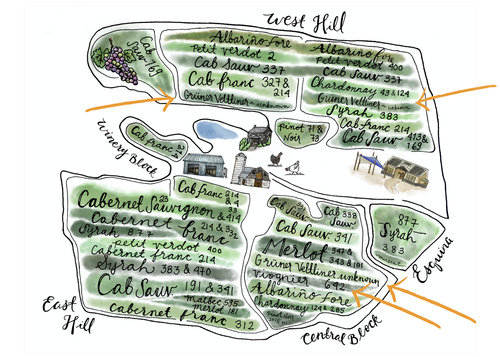 West Hill
Cab
Sauv 169
Albariño Lore
Petit verdot 2
Cab Sauv 337
Cab franc 327 &
214
Grüner Veltliner - unknown
Albariño Lore
Petit verdot 400
Cab Sauv 337
Chardonnay 43 & 124
Grüner Veltliner -
Syrah 383
Cab Franc 214
Cab Sauv 413 &
169
Winery Block
Cab franc
pinot 71 &
Noir 73
Cab franc 214
Cabernet Sauvignon 23
& 414
Cabernet franc 214 & 332
Syrah 877
petit verdot 400
Cabernet franc 214
Syrah 383 & 470
Cab Sauv 191 & 341
malbec 595
merlot 181
Cabernet franc 312
East
Hill
Cab Sauv
Cab 338
Sauv
Cab Sauv 341
Merlot 347 &
343 & 181
Grüner Veltliner unknown
Viognier 642
Albariño Lore
Chardonnay 124 & 285
Central Block
877
Syrah
383
Esquina